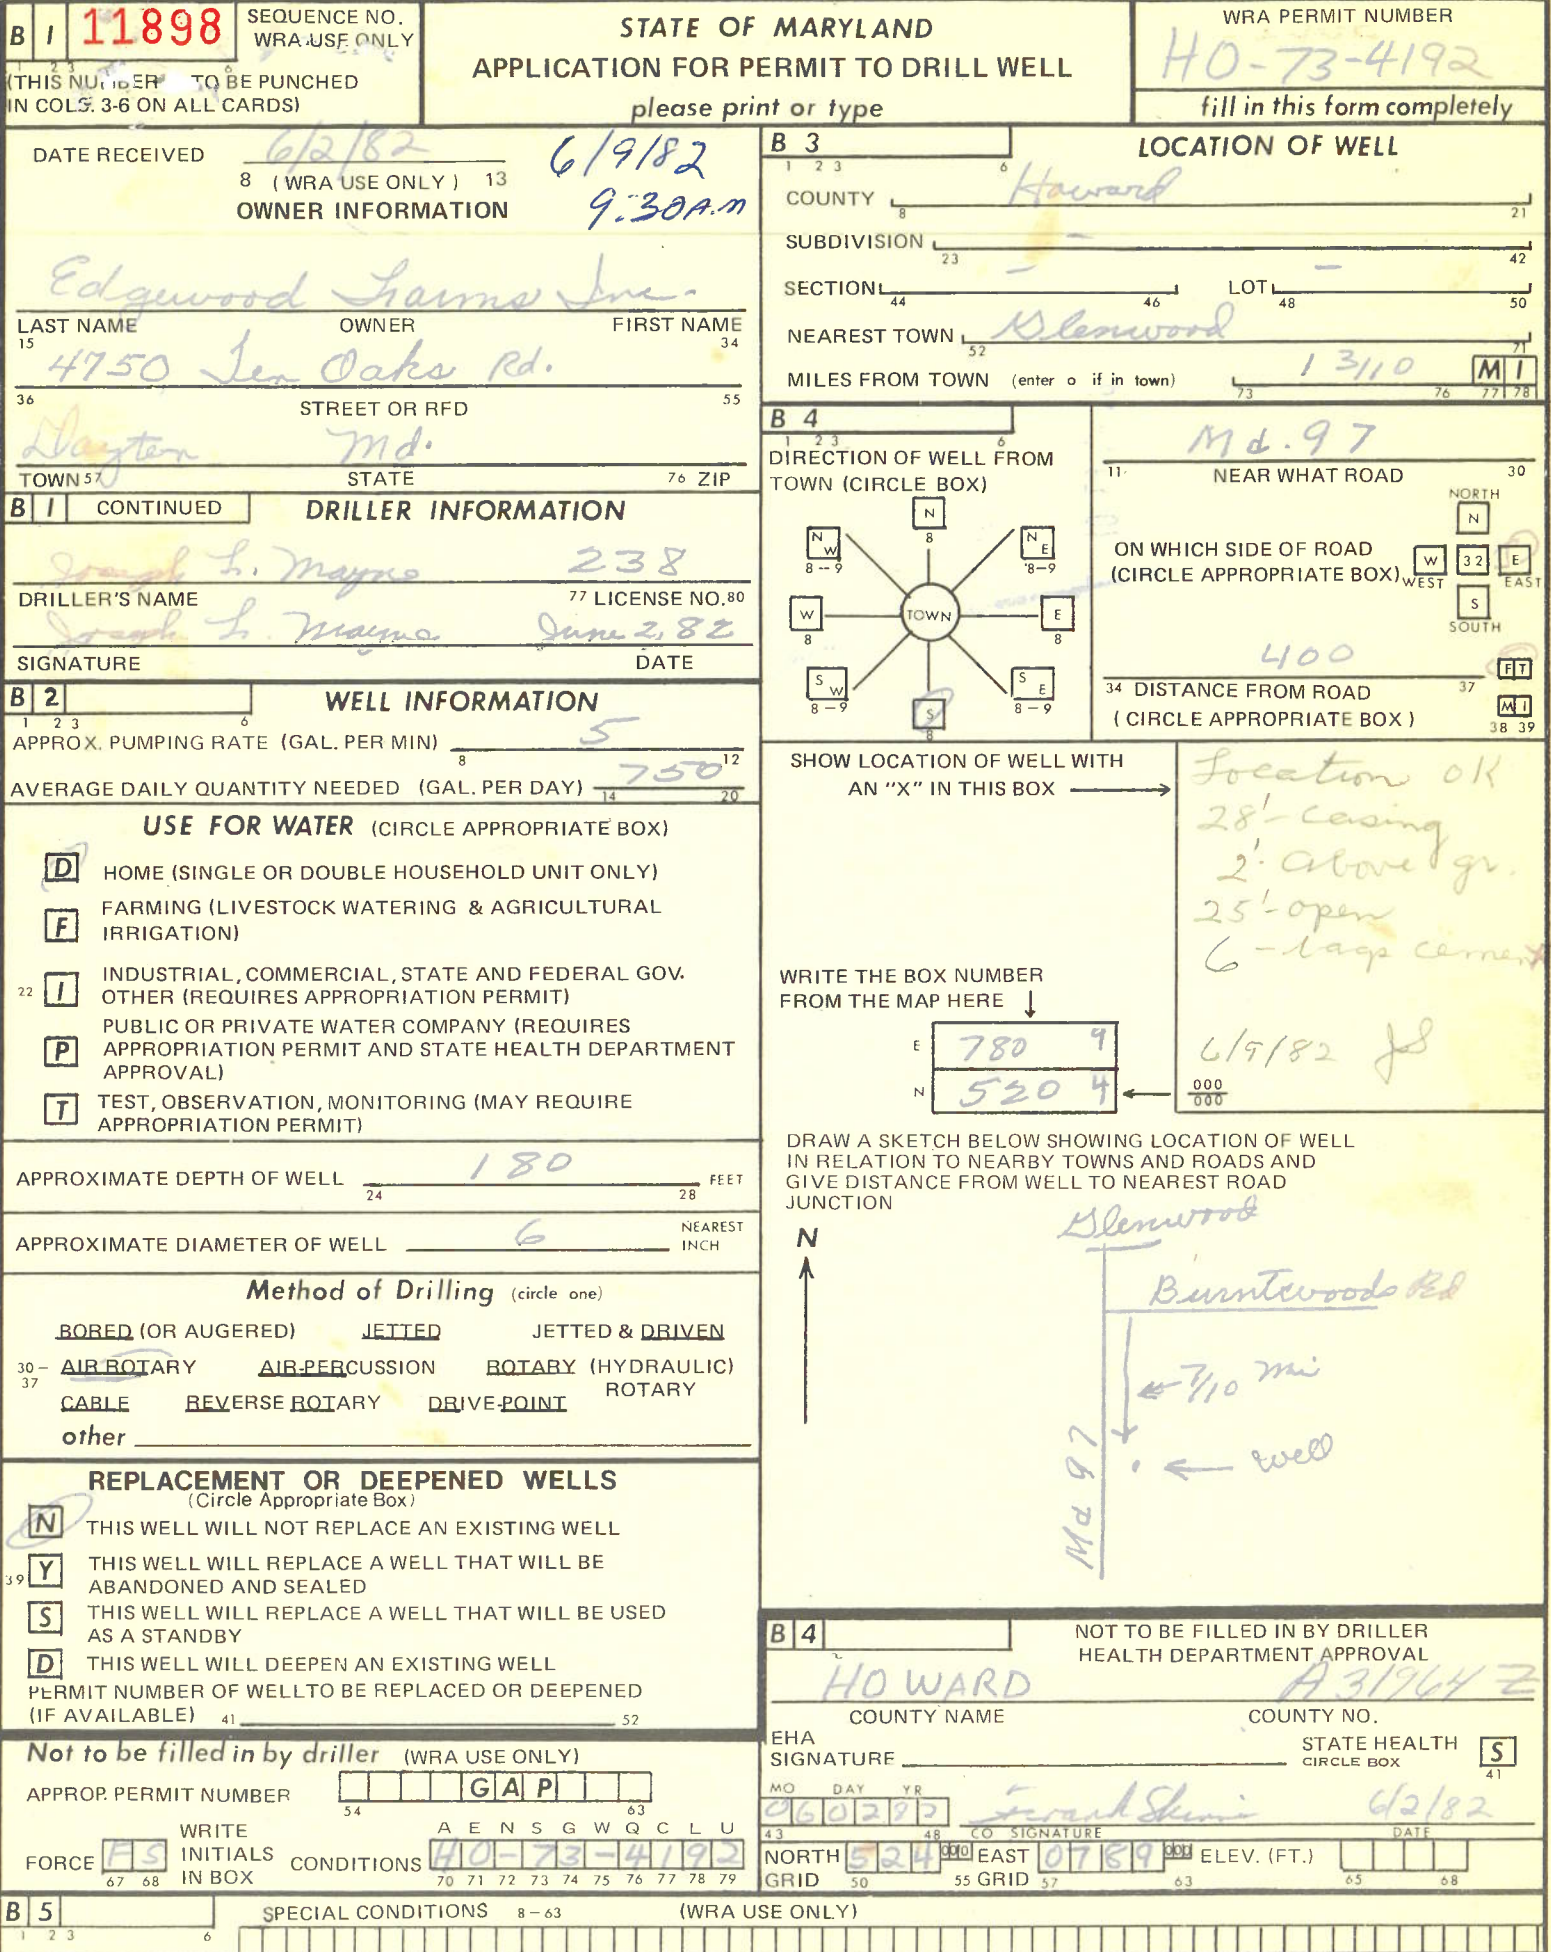 B 1 11898 SEQUENCE NO.
WRA USE ONLY
1 2 3 6
(THIS NUMBER TO BE PUNCHED
IN COLS. 3-6 ON ALL CARDS)
STATE OF MARYLAND
APPLICATION FOR PERMIT TO DRILL WELL
please print or type
WRA PERMIT NUMBER
HO-73-4192
fill in this form completely
DATE RECEIVED 6/2/82
8 (WRA USE ONLY) 13
6/9/82
9:30 A.M
OWNER INFORMATION
Edgewood Farms Inc.
LAST NAME OWNER FIRST NAME
15 34
4750 Ten Oaks Rd.
36 STREET OR RFD 55
Dayton Md.
TOWN 57 STATE 76 ZIP
B 1 CONTINUED DRILLER INFORMATION
Joseph L. Mayne 238
DRILLER'S NAME 77 LICENSE NO. 80
Joseph L. Mayne June 2, 82
SIGNATURE DATE
B 2 WELL INFORMATION
1 2 3 6
APPROX. PUMPING RATE (GAL. PER MIN) 5
8 12
AVERAGE DAILY QUANTITY NEEDED (GAL. PER DAY) 750
14 20
USE FOR WATER (CIRCLE APPROPRIATE BOX)
D HOME (SINGLE OR DOUBLE HOUSEHOLD UNIT ONLY)
F FARMING (LIVESTOCK WATERING & AGRICULTURAL
IRRIGATION)
22 I INDUSTRIAL, COMMERCIAL, STATE AND FEDERAL GOV.
OTHER (REQUIRES APPROPRIATION PERMIT)
P PUBLIC OR PRIVATE WATER COMPANY (REQUIRES
APPROPRIATION PERMIT AND STATE HEALTH DEPARTMENT
APPROVAL)
T TEST, OBSERVATION, MONITORING (MAY REQUIRE
APPROPRIATION PERMIT)
APPROXIMATE DEPTH OF WELL 180 FEET
24 28
APPROXIMATE DIAMETER OF WELL 6 NEAREST
INCH
Method of Drilling (circle one)
BORED (OR AUGERED) JETTED JETTED & DRIVEN
30-37 AIR ROTARY AIR-PERCUSSION ROTARY (HYDRAULIC)
ROTARY
CABLE REVERSE ROTARY DRIVE-POINT
other
REPLACEMENT OR DEEPENED WELLS
(Circle Appropriate Box)
N THIS WELL WILL NOT REPLACE AN EXISTING WELL
39 Y THIS WELL WILL REPLACE A WELL THAT WILL BE
ABANDONED AND SEALED
S THIS WELL WILL REPLACE A WELL THAT WILL BE USED
AS A STANDBY
D THIS WELL WILL DEEPEN AN EXISTING WELL
PERMIT NUMBER OF WELL TO BE REPLACED OR DEEPENED
(IF AVAILABLE) 41 52
Not to be filled in by driller (WRA USE ONLY)
APPROP. PERMIT NUMBER G A P
54 63
WRITE A E N S G W Q C L U
FORCE FS INITIALS CONDITIONS HO-73-4192
67 68 IN BOX 70 71 72 73 74 75 76 77 78 79
B 3 LOCATION OF WELL
1 2 3 6
COUNTY Howard
8 21
SUBDIVISION -
23 42
SECTION - LOT -
44 46 48 50
NEAREST TOWN Glenwood
52 71
MILES FROM TOWN (enter o if in town) 1 3/10 M I
73 76 77 78
B 4
1 2 3 6
DIRECTION OF WELL FROM
TOWN (CIRCLE BOX)
N
8
N W N E
8-9 8-9
W TOWN E
8 8
S W S E
8-9 8-9
S
8
Md. 97
11 NEAR WHAT ROAD 30
NORTH
N
ON WHICH SIDE OF ROAD
(CIRCLE APPROPRIATE BOX) W 32 E
WEST EAST
S
SOUTH
400 FT
34 DISTANCE FROM ROAD 37
(CIRCLE APPROPRIATE BOX) MI
38 39
SHOW LOCATION OF WELL WITH
AN "X" IN THIS BOX
Location OK
28'-casing
2'-above gr.
25'-open
6-bags cement
6/9/82 JS
WRITE THE BOX NUMBER
FROM THE MAP HERE
E 780 9
N 520 4
000
000
DRAW A SKETCH BELOW SHOWING LOCATION OF WELL
IN RELATION TO NEARBY TOWNS AND ROADS AND
GIVE DISTANCE FROM WELL TO NEAREST ROAD
JUNCTION
N
Glenwood
Burntwoods Rd
7/10 mi
well
Md 97
B 4 NOT TO BE FILLED IN BY DRILLER
HEALTH DEPARTMENT APPROVAL
HOWARD A 31964 Z
COUNTY NAME COUNTY NO.
EHA
SIGNATURE STATE HEALTH S
CIRCLE BOX 41
MO DAY YR
060282 6/2/82
43 48 CO SIGNATURE DATE
NORTH 524 000 EAST 0789 000 ELEV. (FT.)
GRID 50 55 GRID 57 63 65 68
B 5 SPECIAL CONDITIONS 8-63 (WRA USE ONLY)
1 2 3 6